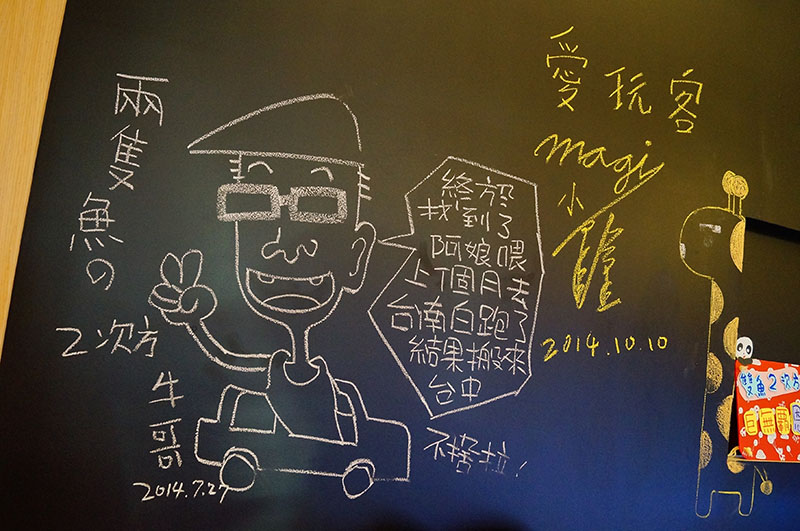 兩隻魚の
2次方
牛哥
2014.7.27
終於
找到了
阿娘喂
上個月去
台南白跑了
結果搬來
台中
不捨拉!
愛玩客
magi
小
2014.10.10
雙魚2次方